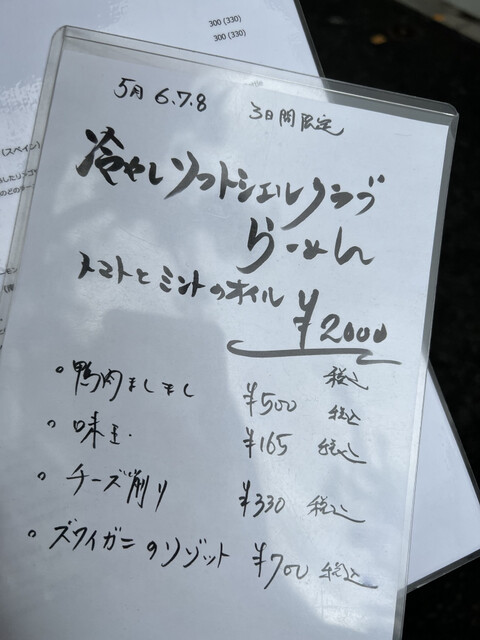 300 (330)
300 (330)
(スペイン)
5月 6.7.8 3日間限定
冷やしソフトシェルクラブ
らーめん
トマトとミントのオイル
¥2000
税込
・鴨肉ましまし ¥500 税込
・味玉. ¥165 税込
・チーズ削り ¥330 税込
・ズワイガニのリゾット ¥700 税込